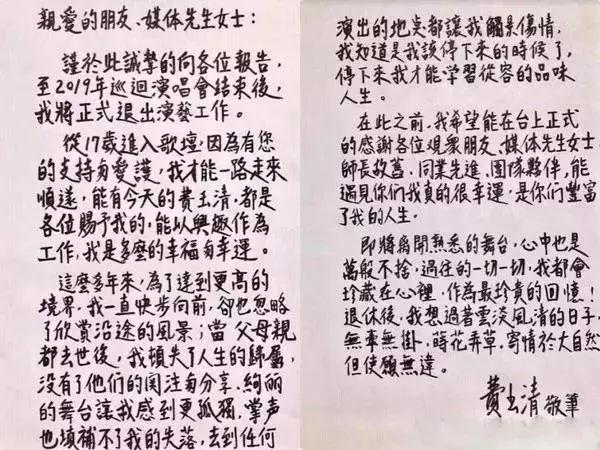 親愛的朋友、媒体先生女士：
謹於此誠摯的向各位報告，
至2019年巡迴演唱會結束後，
我將正式退出演藝工作。
從17歲進入歌壇，因為有您
的支持与愛護，我才能一路走來
順遂，能有今天的費玉清，都是
各位賜予我的，能以興趣作為
工作，我是多麼的幸福与幸運。
這麼多年來，為了達到更高的
境界，我一直快步向前，卻也忽略
了欣賞沿途的風景；當父母親
都去世後，我頓失了人生的歸屬，
沒有了他們的関注与分享，絢麗
的舞台讓我感到更孤獨，掌声
也填補不了我的失落，去到任何
演出的地点都讓我觸景傷情，
我知道是我該停下來的時候了，
停下來我才能學習從容的品味
人生。
在此之前，我希望能在台上正式
的感謝各位觀衆朋友、媒体先生女士
師長故舊、同業先進、團隊夥伴，能
遇見你們我真的很幸運，是你們豐富
了我的人生。
即將離開熟悉的舞台，心中也是
萬般不捨，過往的一切一切，我都會
珍藏在心裡，作為最珍貴的回憶！
退休後，我想過著雲淡風清的日子，
無牽無掛，蒔花弄草，寄情於大自然
但使願無違。
費玉清 敬筆